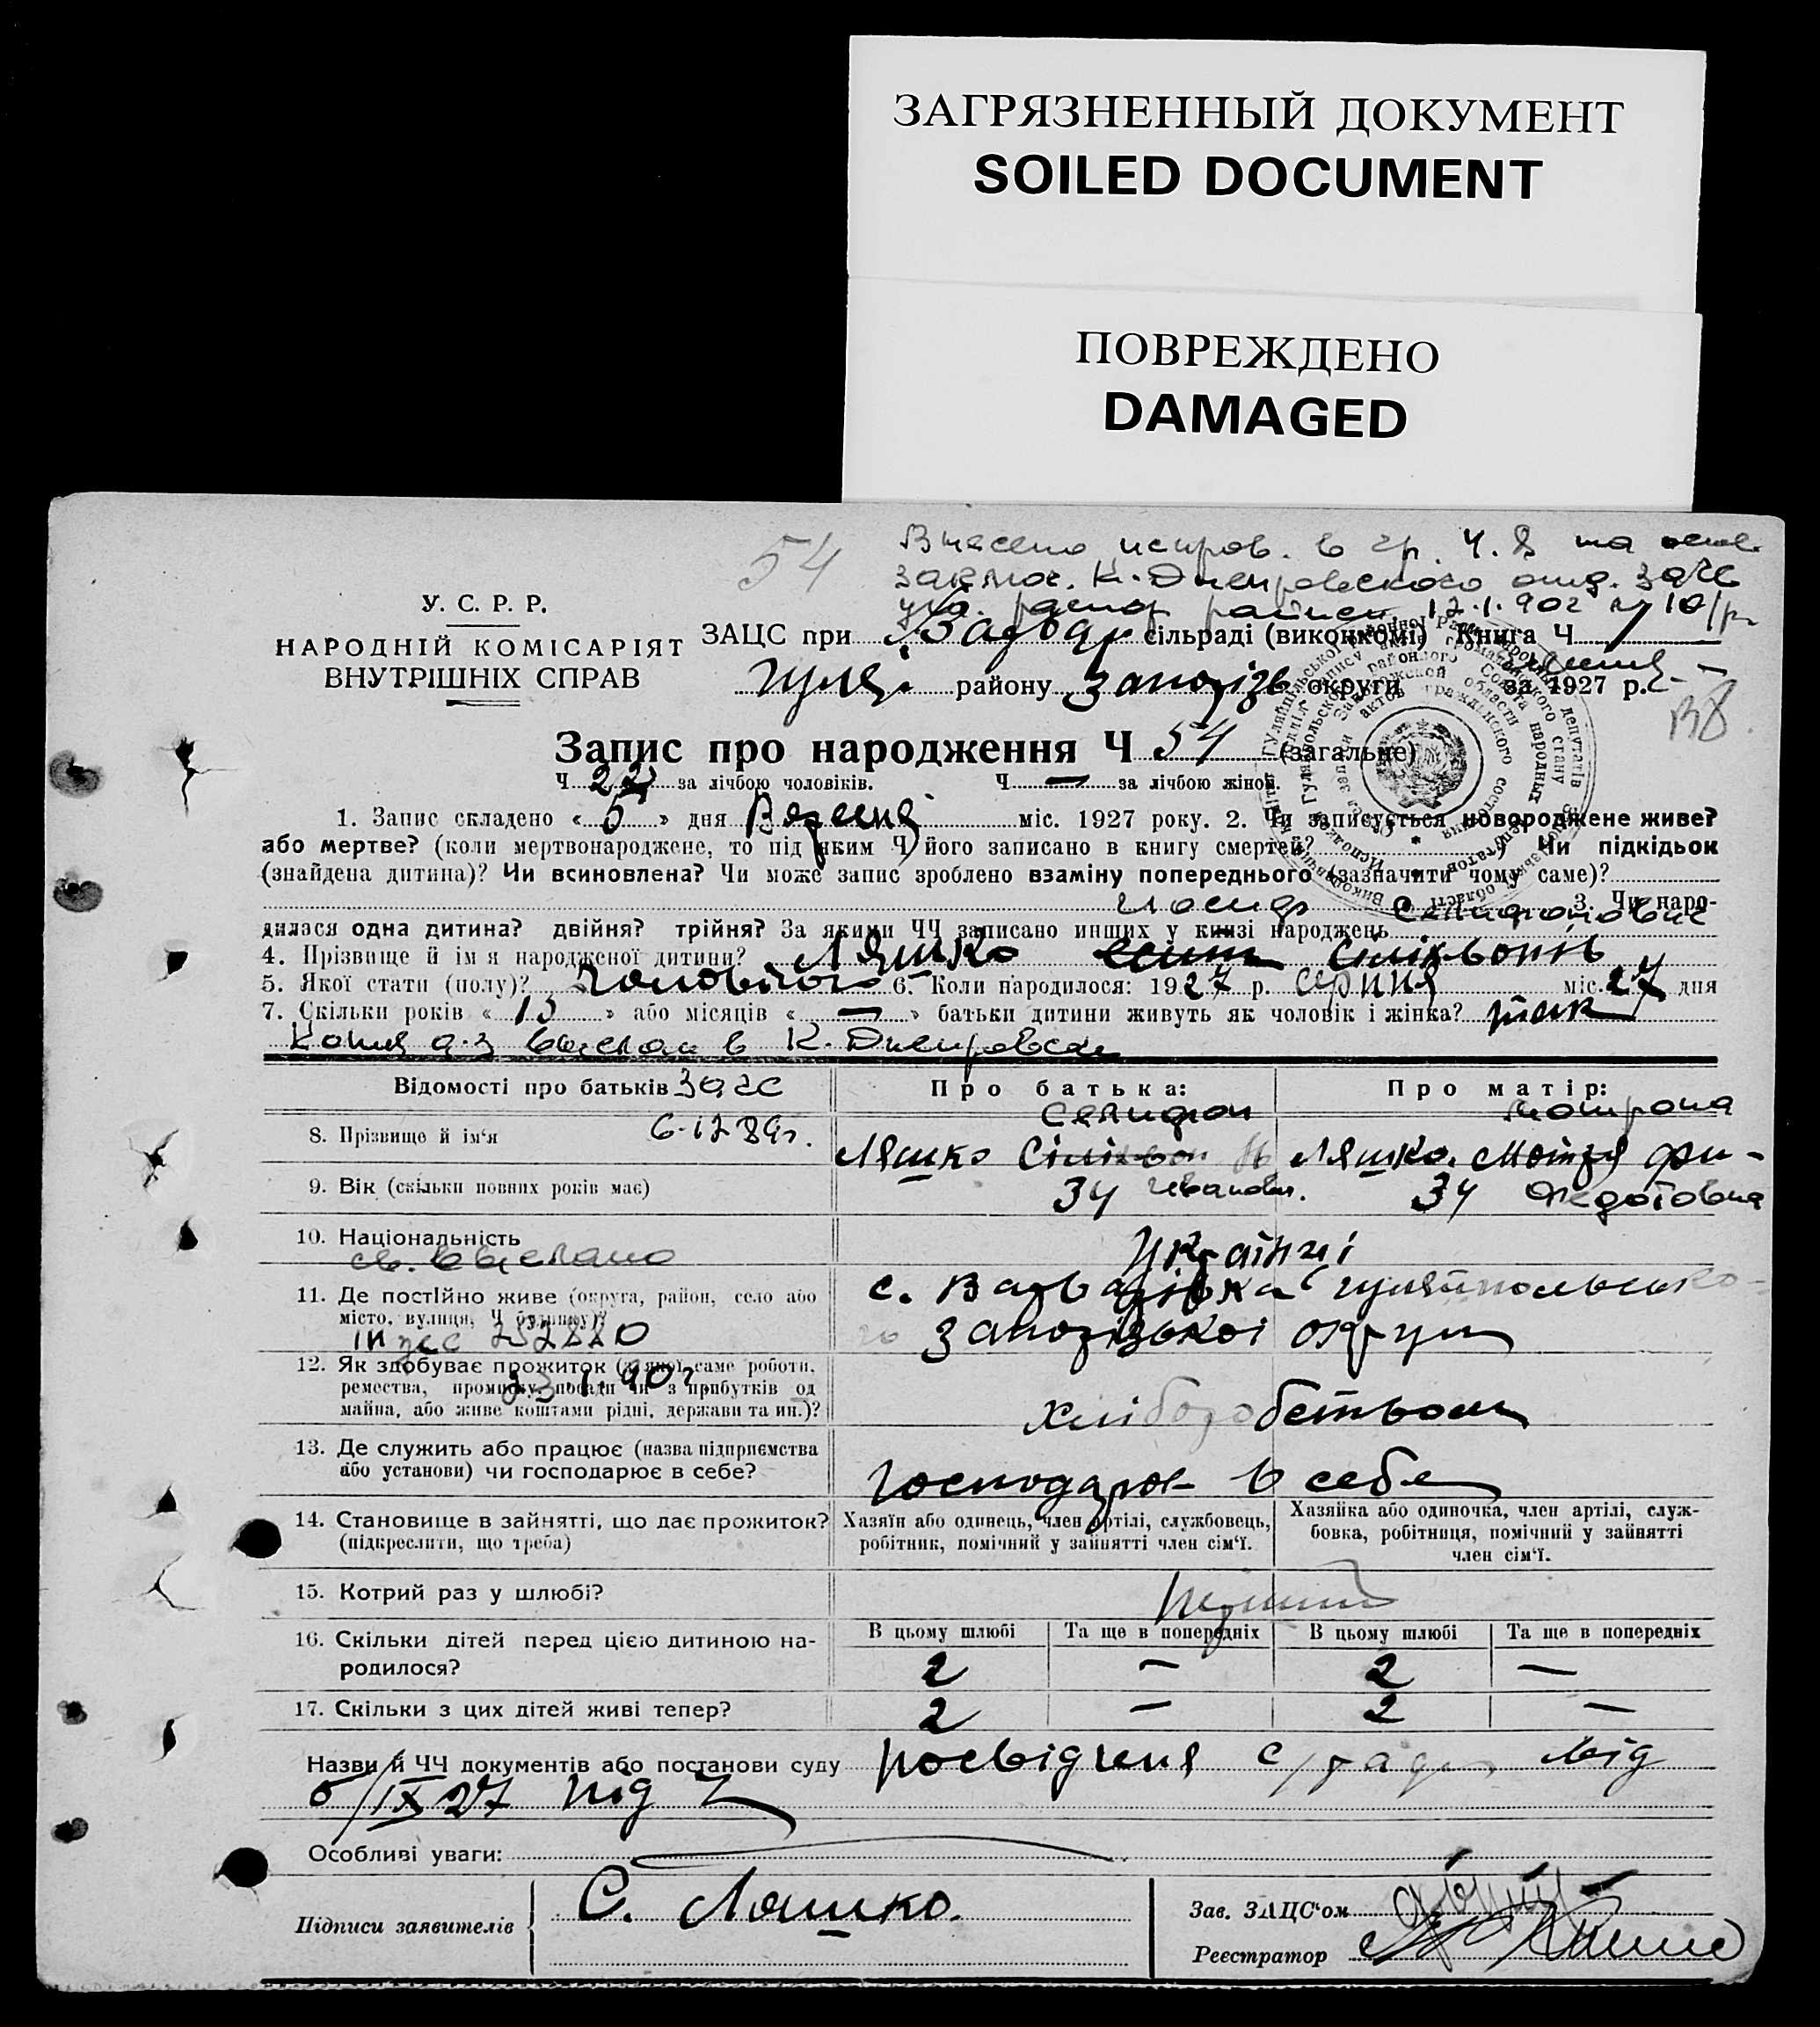 ЗАГРЯЗНЕННЫЙ ДОКУМЕНТ
SOILED DOCUMENT
ПОВРЕЖДЕНО
DAMAGED
54
Внесено исправ. в гр. 4. 8 на
заключ. К. Днепровского отд. загс
12.1.90г
У. С. Р. Р.
НАРОДНІЙ КОМІСАРІЯТ
ВНУТРІШНІХ СПРАВ
ЗАЦС при сільраді (виконкомі) Книга Ч
Гуляй району Запоріз округи за 1927 р.
Запис про народження Ч 54 (загальне)
Ч 22 за лічбою чоловіків. Ч — за лічбою жінок.
1. Запис складено « 5 » дня Вересня міс. 1927 року. 2. Чи записується новороджене живе?
або мертве? (коли мертвонароджене, то під яким Ч його записано в книгу смертей? ) Чи підкідьок
(знайдена дитина)? Чи всиновлена? Чи може запис зроблено взаміну попереднього (зазначити чому саме)?
3. Чи наро-
Иосиф Селифонович
дилася одна дитина? двійня? трійня? За якими ЧЧ записано инших у книзі народжень
4. Прізвище й ім'я народженої дитини? Ляшко
5. Якої стати (полу)? 6. Коли народилося: 1927 р. серпня міс. 27 дня
7. Скільки років « 13 » або місяців « — » батьки дитини живуть як чоловік і жінка? так
Копия а.з выслан в К. Днепровск
Відомості про батьків загс Про батька: Про матір:
6.12.89г.
Селифон Мотрона
8. Прізвище й ім'я Ляшко Ляшко Мотря
9. Вік (скільки повних років має) 34 Иванович. 34 Федотовна
10. Національність Українці
св. выслано
11. Де постійно живе (округа, район, село або
місто, вулиця, Ч будинку)?
с. Варварівка Гуляйпольсько-
го Запорізької округи
12. Як здобуває прожиток (з якої саме роботи,
ремества, промислу, посади чи з прибутків од
майна, або живе коштами рідні, держави та ин.)?
23.1.90г
хліборобством
13. Де служить або працює (назва підприємства
або установи) чи господарює в себе?
господарює в себе
14. Становище в зайнятті, що дає прожиток?
(підкреслити, що треба)
Хазяїн або одинець, член артілі, службовець,
робітник, помічний у зайнятті член сім'ї.
Хазяйка або одиночка, член артілі, служ-
бовка, робітниця, помічний у зайнятті
член сім'ї.
15. Котрий раз у шлюбі?
16. Скільки дітей перед цією дитиною на-
родилося?
В цьому шлюбі Та ще в попередніх В цьому шлюбі Та ще в попередніх
2 — 2 —
17. Скільки з цих дітей живі тепер? 2 — 2 —
Назви й ЧЧ документів або постанови суду посвідченя від
5/IX 27 під
Особливі уваги:
Підписи заявителів С. Ляшко.
Зав. ЗАЦС'ом
Реєстратор